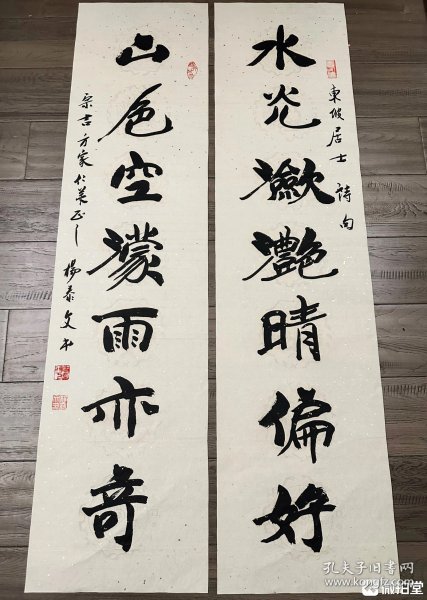 水光瀲灧晴偏好
東坡居士詩句
山色空濛雨亦奇
方家
楊泰文书
孔夫子旧书网
www.kongfz.com
微拍堂